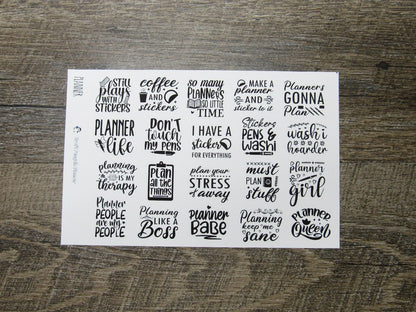 PLANNER
STILL
plays
WITH
STICKERS
coffee
AND
stickers
SO MANY
PLANNERS
SO LITTLE
TIME
MAKE A
planner
AND
sticker to it
Planners
GONNA
Plan
PLANNER
life
DON'T
touch
my pens
I HAVE A
sticker
FOR EVERYTHING
Stickers
PENS &
Washi
washi
hoarder
planning
IS MY
therapy
PLAN
all the
THINGS
plan your
STRESS
away
must
PLAN
stuff
planner
girl
Planner
PEOPLE
are my
PEOPLE
Planning
LIKE A
Boss
Planner
BABE
Planning
keep me
sane
PLANNER
Queen